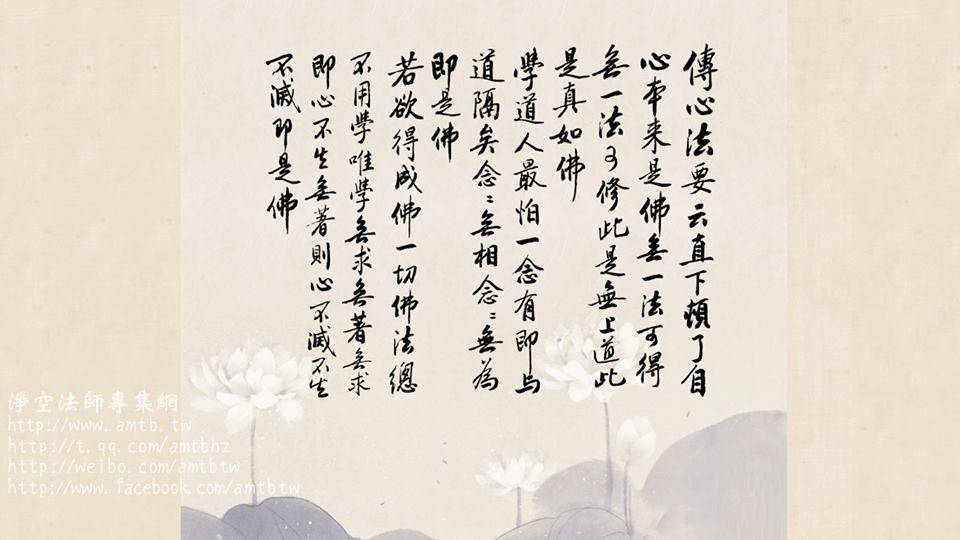 傳心法要云直下頓了自
心本来是佛無一法可得
無一法可修此是無上道此
是真如佛
學道人最怕一念有即与
道隔矣念〻無相念〻無為
即是佛
若欲得成佛一切佛法總
不用學唯學無求無著無求
即心不生無著則心不滅不生
不滅即是佛
淨空法師專集網
http://www.amtb.tw
http://t.qq.com/amtbhz
http://weibo.com/amtbtw
http://www.facebook.com/amtbtw